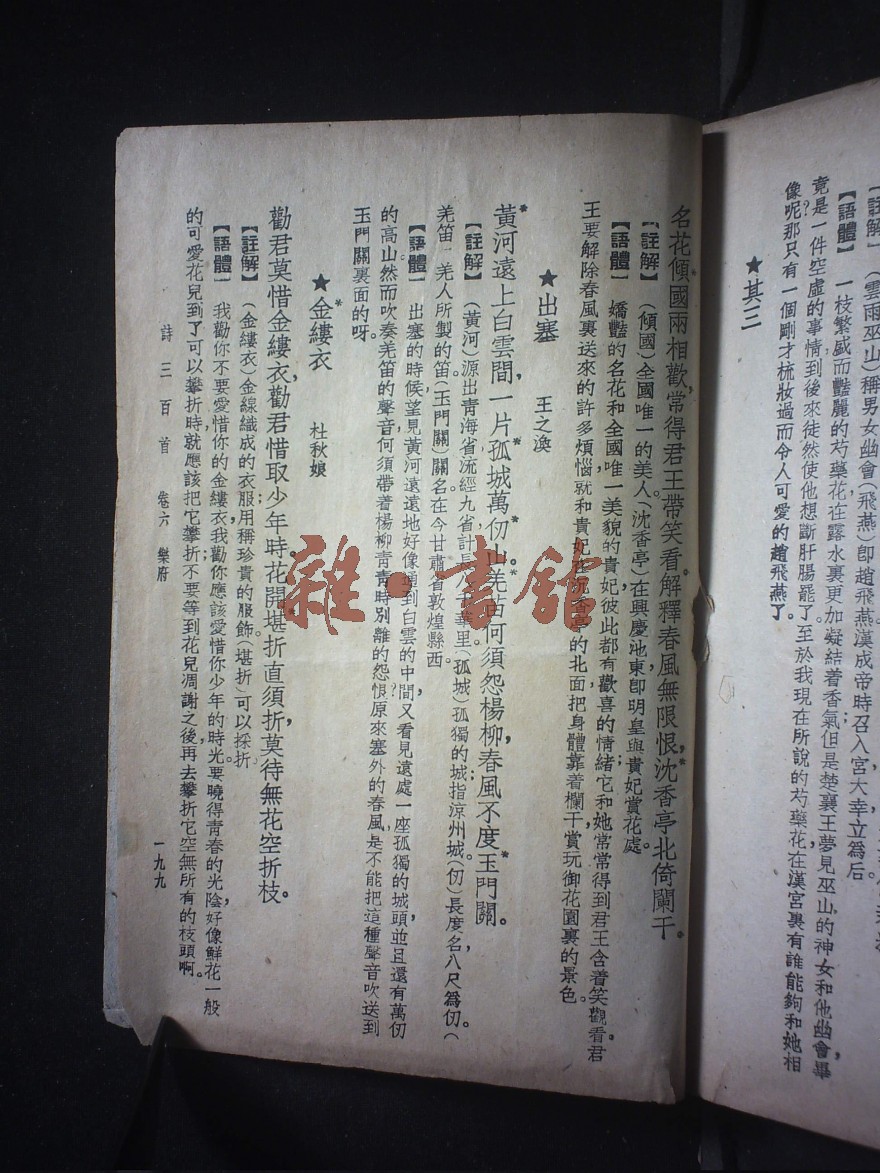 【註解】（雲雨巫山）稱男女幽會（飛燕）卽趙飛燕漢成帝時召入宮大幸立爲后
【語體】一枝繁盛而豔麗的芍藥花在露水裏更加凝結着香氣；但是楚襄王夢見巫山的神女和他幽會，畢
竟是一件空虛的事情到後來徒然使他想斷肝腸罷了至於我現在所說的芍藥花在漢宮裏有誰能夠和她相
像呢？那只有一個剛才梳妝過而令人可愛的趙飛燕了。
★其三
名花傾國兩相歡，常得君王帶笑看。解釋春風無限恨，沈香亭北倚闌干。
【註解】（傾國）全國唯一的美人（沈香亭）在興慶池東卽明皇與貴妃賞花處。
【語體】嬌豔的名花和全國唯一美貌的貴妃，彼此都有歡喜的情緒；它和她常常得到君王含着笑觀看。君
王要解除春風裏送來的許多煩惱，就和貴妃在沉香亭的北面，把身體靠着欄干賞玩御花園裏的景色。
★出塞　王之渙
黃河遠上白雲間，一片孤城萬仞山。羌笛何須怨楊柳，春風不度玉門關。
【註解】（黃河）源出青海省，流經九省，計長華里（孤城）孤獨的城，指涼州城。（仞）長度名，八尺爲仞。（
羌笛）羌人所製的笛（玉門關）關名在今甘肅省敦煌縣西。
【語體】出塞的時候望見黃河遠遠地好像通到白雲的中間，又看見遠處一座孤獨的城頭，並且還有萬仞
的高山然而吹奏羌笛的聲音何須帶着楊柳青青時別離的怨恨？原來塞外的春風，是不能把這種聲音吹送到
玉門關裏面的呀。
★金縷衣　杜秋娘
勸君莫惜金縷衣，勸君惜取少年時。花開堪折直須折，莫待無花空折枝。
【註解】（金縷衣）金線織成的衣服；用稱珍貴的服飾。（堪折）可以採折。
【語體】我勸你不要愛惜你的金縷衣，我勸你應該愛惜你少年的時光。要曉得青春的光陰好像鮮花一般
的可愛花兒到了可以攀折時，就應該把它攀折；不要等到花兒凋謝之後，再去攀折它空無所有的枝頭啊。
詩三百首　卷六　樂府　一九九
雜·書館